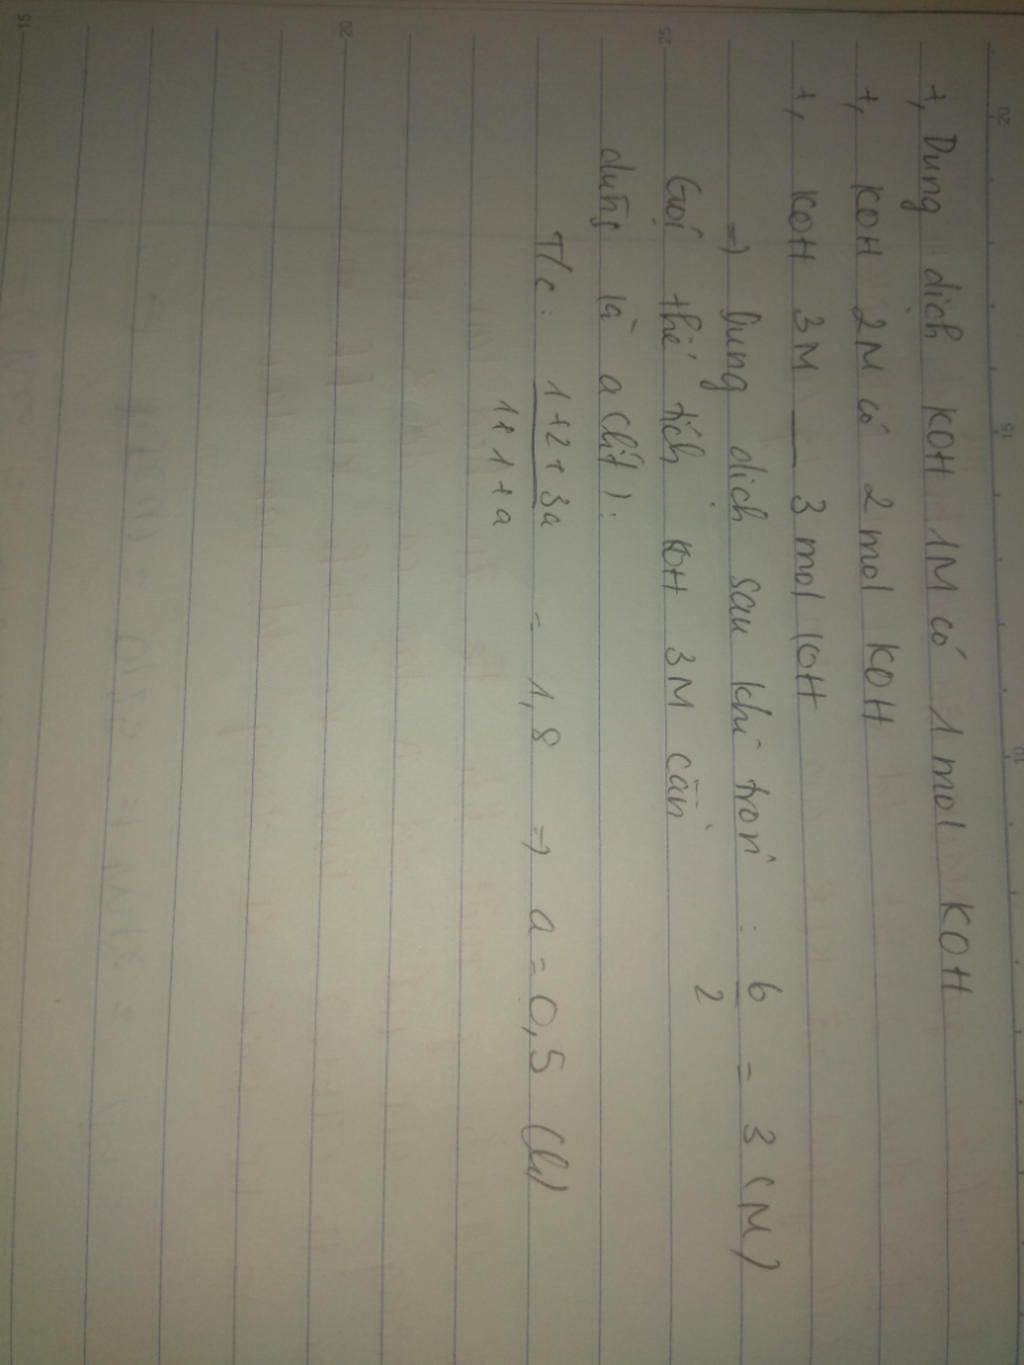 +, Dung dịch KOH 1M có 1 mol KOH
+, KOH 2M có 2 mol KOH
+, KOH 3M — 3 mol KOH
=) Dung dịch sau khi trộn : 6/2 = 3 (M)
Gọi thể tích KOH 3M cần
dùng là a (lít) :
T/c : 1+2+3a / 1+1+a = 1,8 => a = 0,5 (lít)